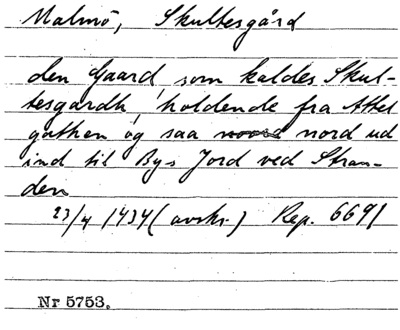 Malmö, Skultesgård
den Gaard, som kaldes Skul-
tesgardh, holdende fra Athel
gathen og saa nord ud
ind til Bys Jord ved Stran-
den
23/4 1434 (avskr.) Rep. 6691
Nr 5753.